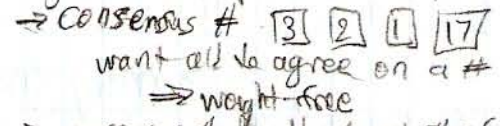 → Consensus # 3 2 1 17
want all to agree on a #
⇒ waight-free